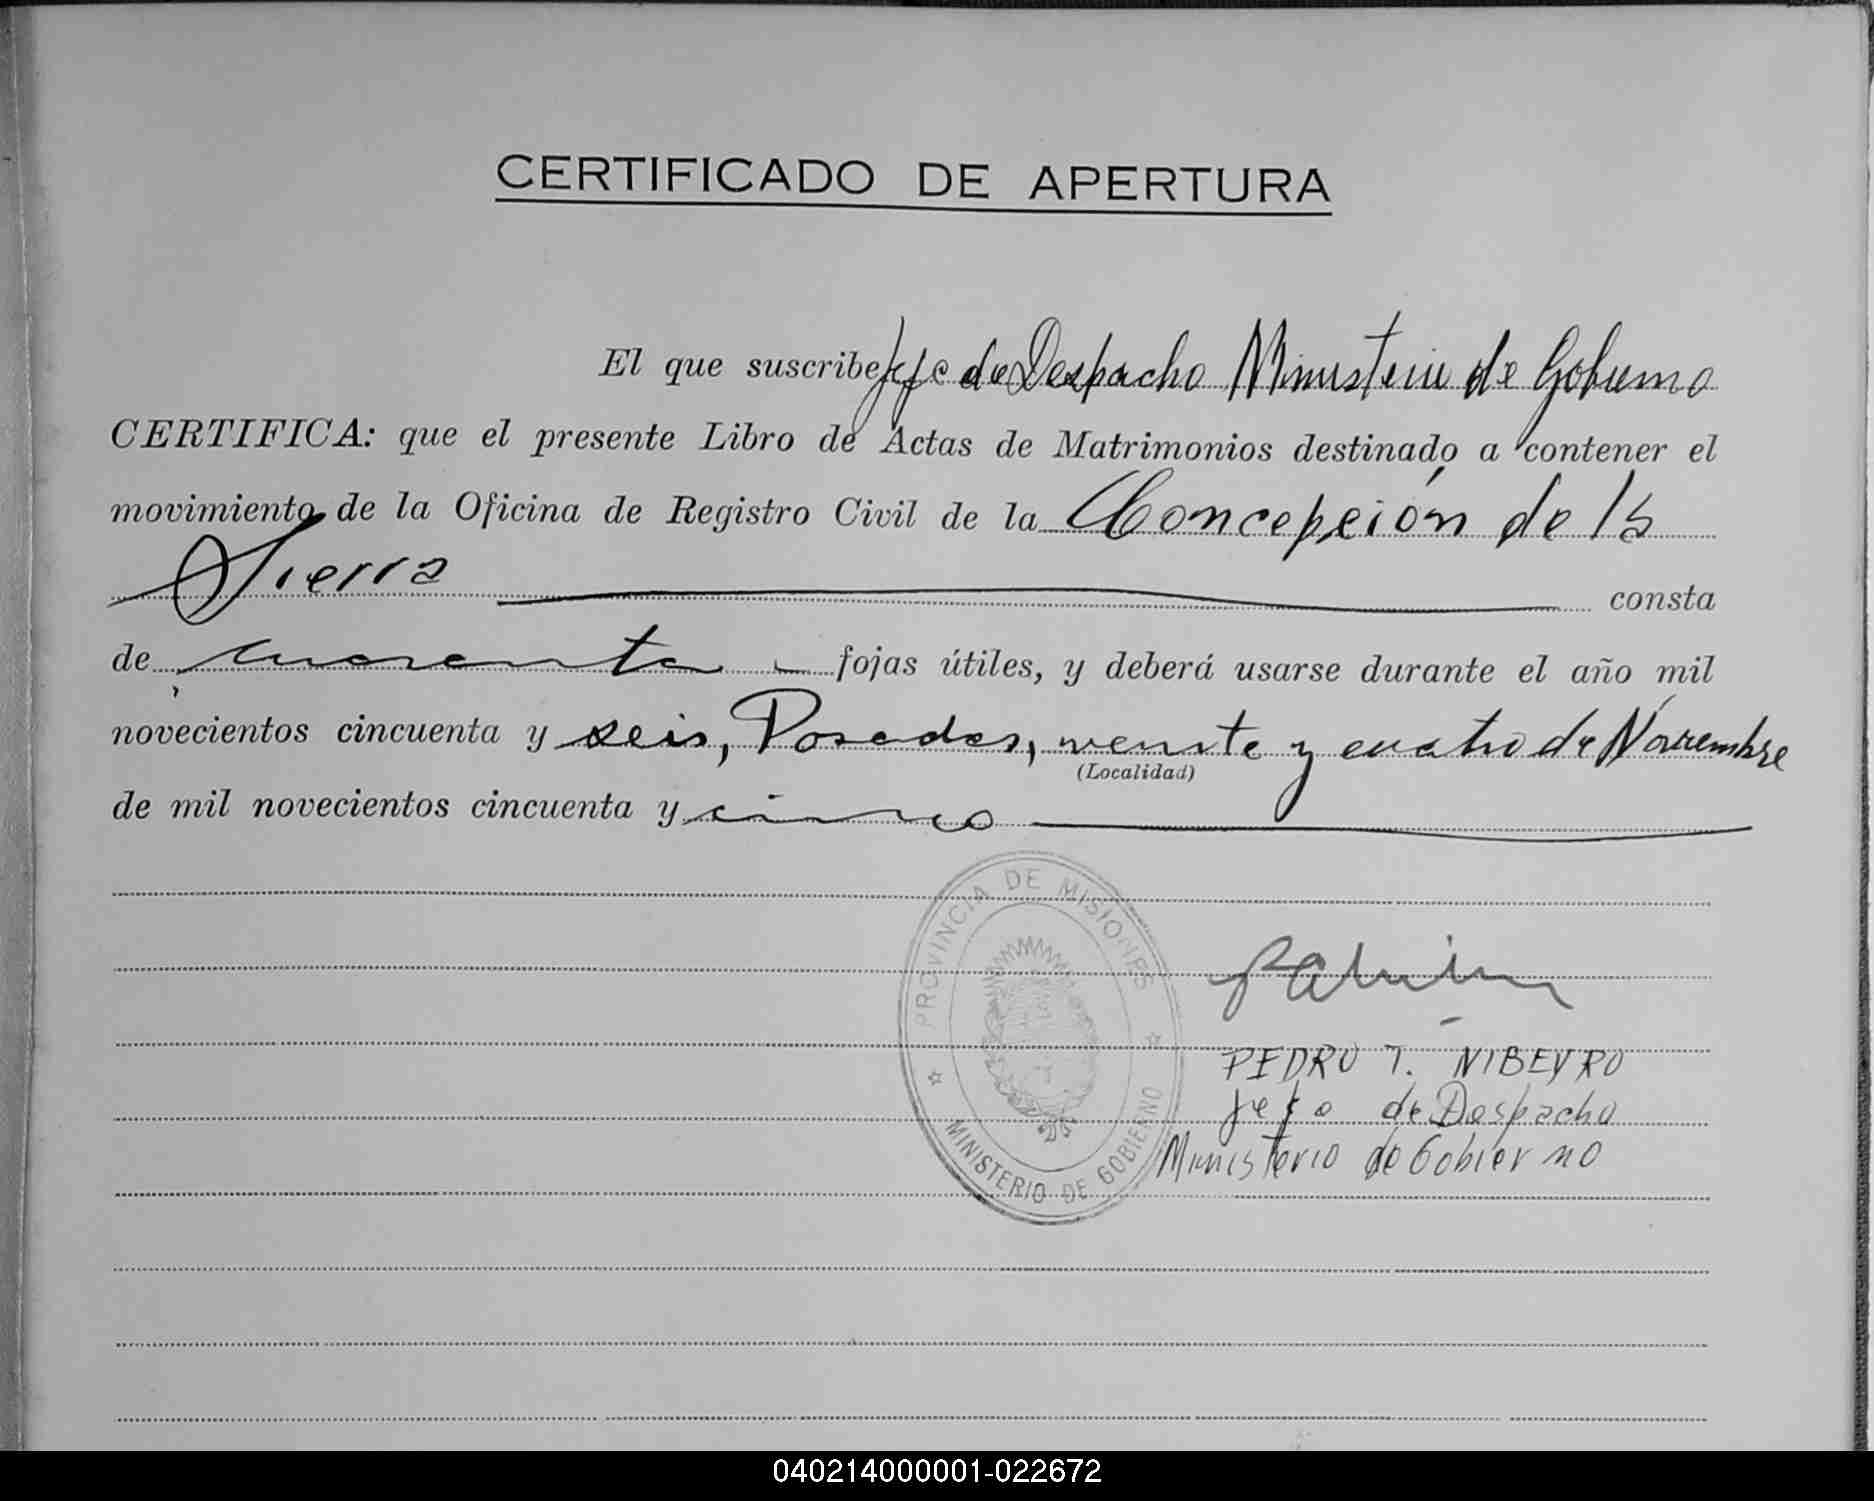 CERTIFICADO DE APERTURA
El que suscribe Jefe de Despacho Ministerio de Gobierno
CERTIFICA: que el presente Libro de Actas de Matrimonios destinado a contener el
movimiento de la Oficina de Registro Civil de la Concepción de la
Sierra consta
de cuarenta fojas útiles, y deberá usarse durante el año mil
novecientos cincuenta y seis, Posadas, veinte y cuatro de Noviembre
(Localidad)
de mil novecientos cincuenta y cinco
PROVINCIA DE MISIONES
MINISTERIO DE GOBIERNO
PEDRO T. NIBEYRO
Jefe de Despacho
Ministerio de Gobierno
040214000001-022672